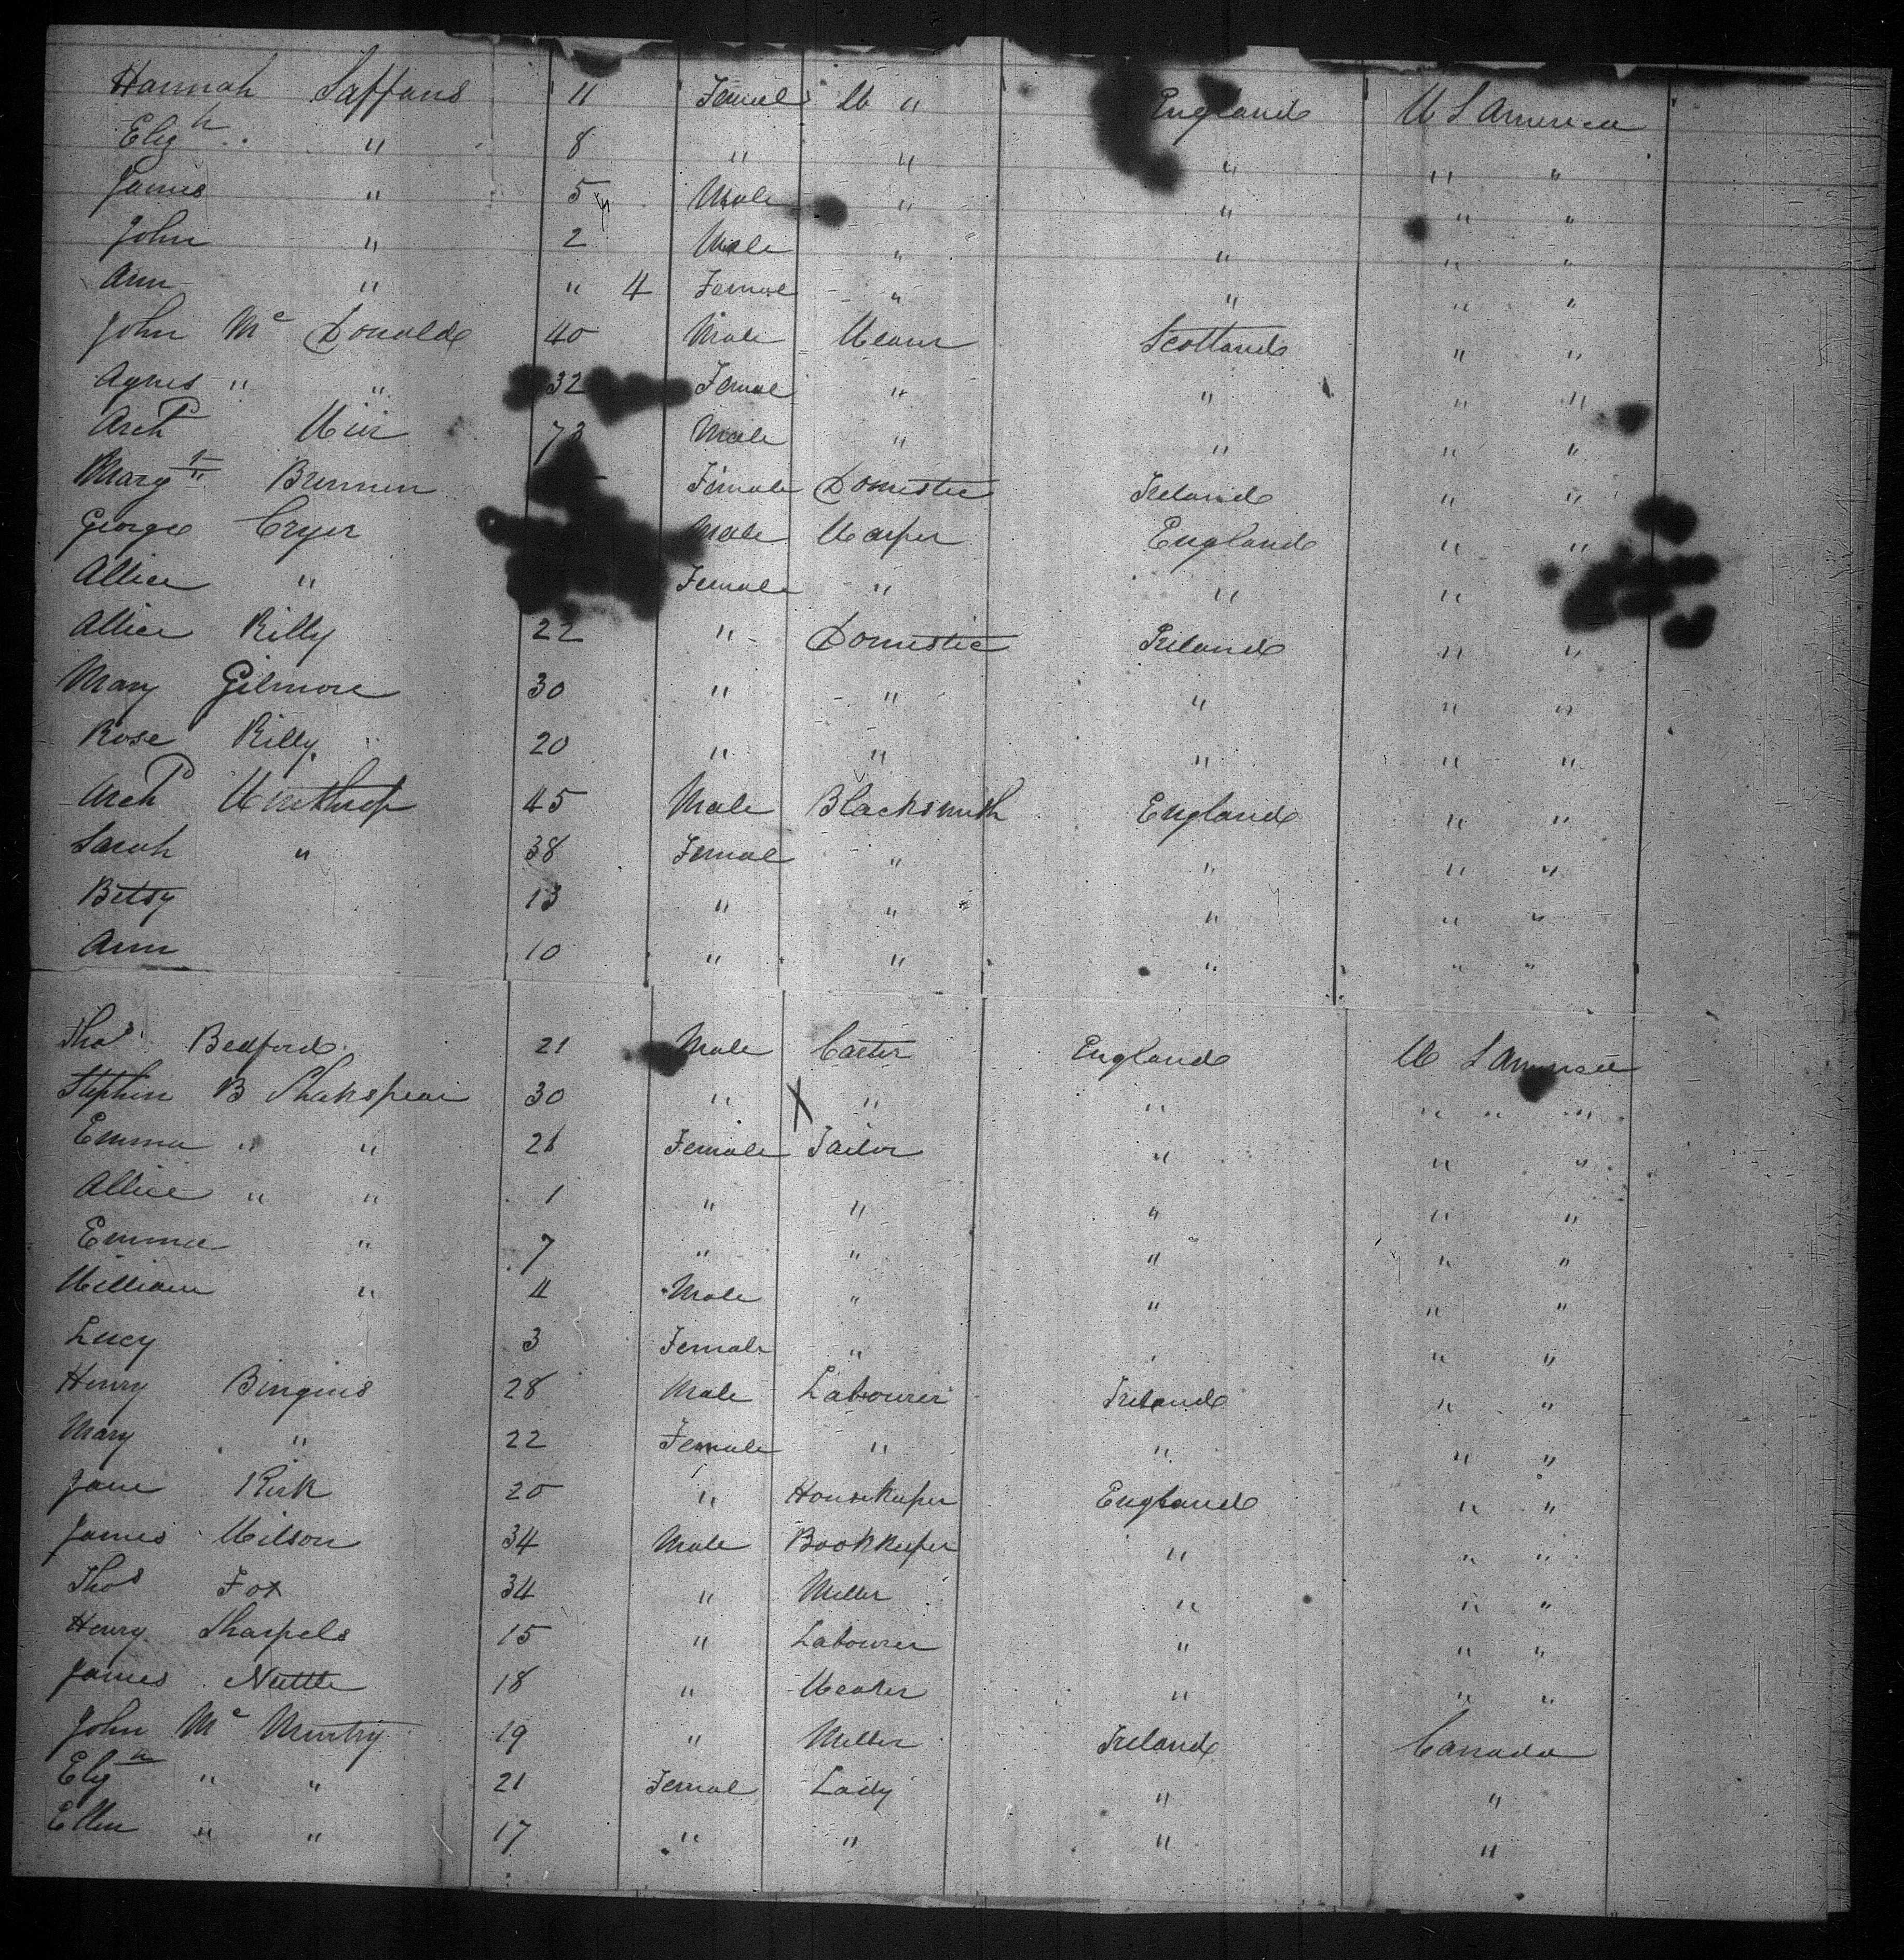 Hannah Saffans 11 Female W " England U S America
Eliz h " 8 " " " " "
James " 5 Male " " " "
John " 2 Male " " " "
Ann " " 4 Female " " " "
John Mc Donald 40 Male Weavr Scotland " "
Agnes " " 32 Female " " " "
Arch d Weir 73 Male " " " "
Marg t Brennen Female Domestic Ireland " "
George Cryer Male England " "
Allice " Female " " "
Allice Rilly 22 " Domestic Ireland " "
Mary Gilmore 30 " " " " "
Rose Rilly 20 " " " " "
Arch d Winthrop 45 Male Blacksmith England " "
Sarah " 38 Female " " " "
Betsy 13 " " " " "
Ann 10 " " " " "
Thos Bedford 21 Male Carter England U S America
Stephen B Shakspear 30 " X " " " " "
Emma " " 26 Female Tailor " " "
Allice " " 1 " " " " "
Emma " 7 " " " " "
William " 4 Male " " " "
Lucy 3 Female " " " "
Henry Bingins 28 Male Labourer Ireland " "
Mary " 22 Female " " " "
Jane Kirk 20 " Housekeeper England " "
James Wilson 34 Male Bookkeeper " " "
Thos Fox 34 " Miller " " "
Henry Sharpels 15 " Labourer " " "
James Nuttle 18 " Weaver " " "
John Mc Murtry 19 " Miller Ireland Canada
Eliz h " " 21 Female Lady " "
Ellen " " 17 " " " "